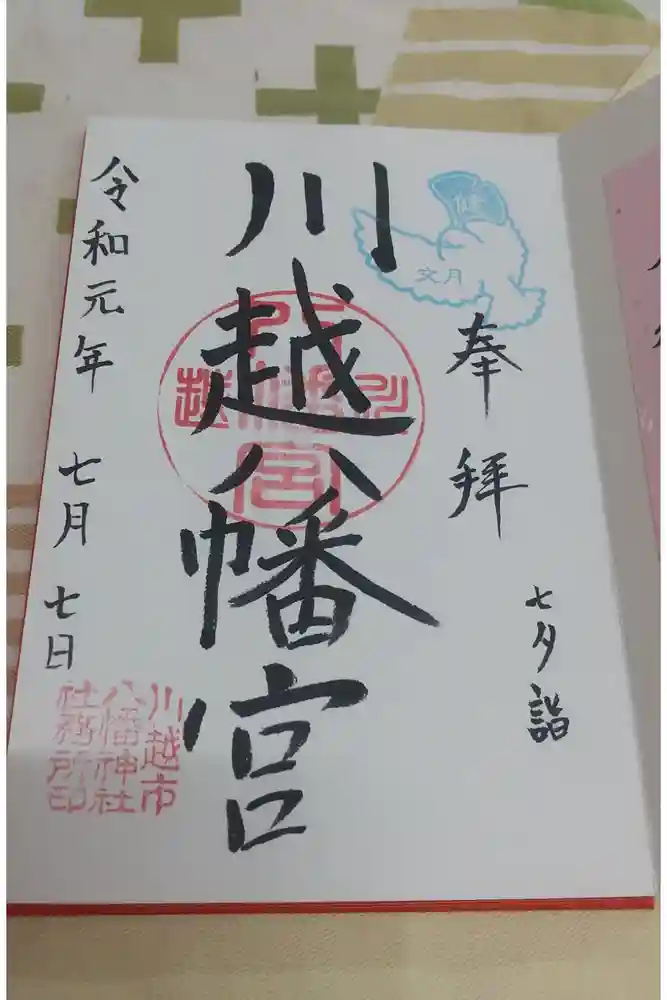 健
文月
奉拝
七夕詣
川越八幡宮
川越八幡宮
令和元年 七月 七日
川越市
八幡神社
社務所印